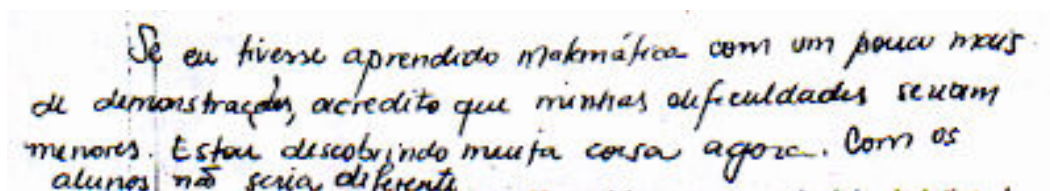 Se eu tivesse aprendido matemática com um pouco mais
de demonstrações, acredito que minhas dificuldades seriam
menores. Estou descobrindo muita coisa agora. Com os
alunos não seria diferente